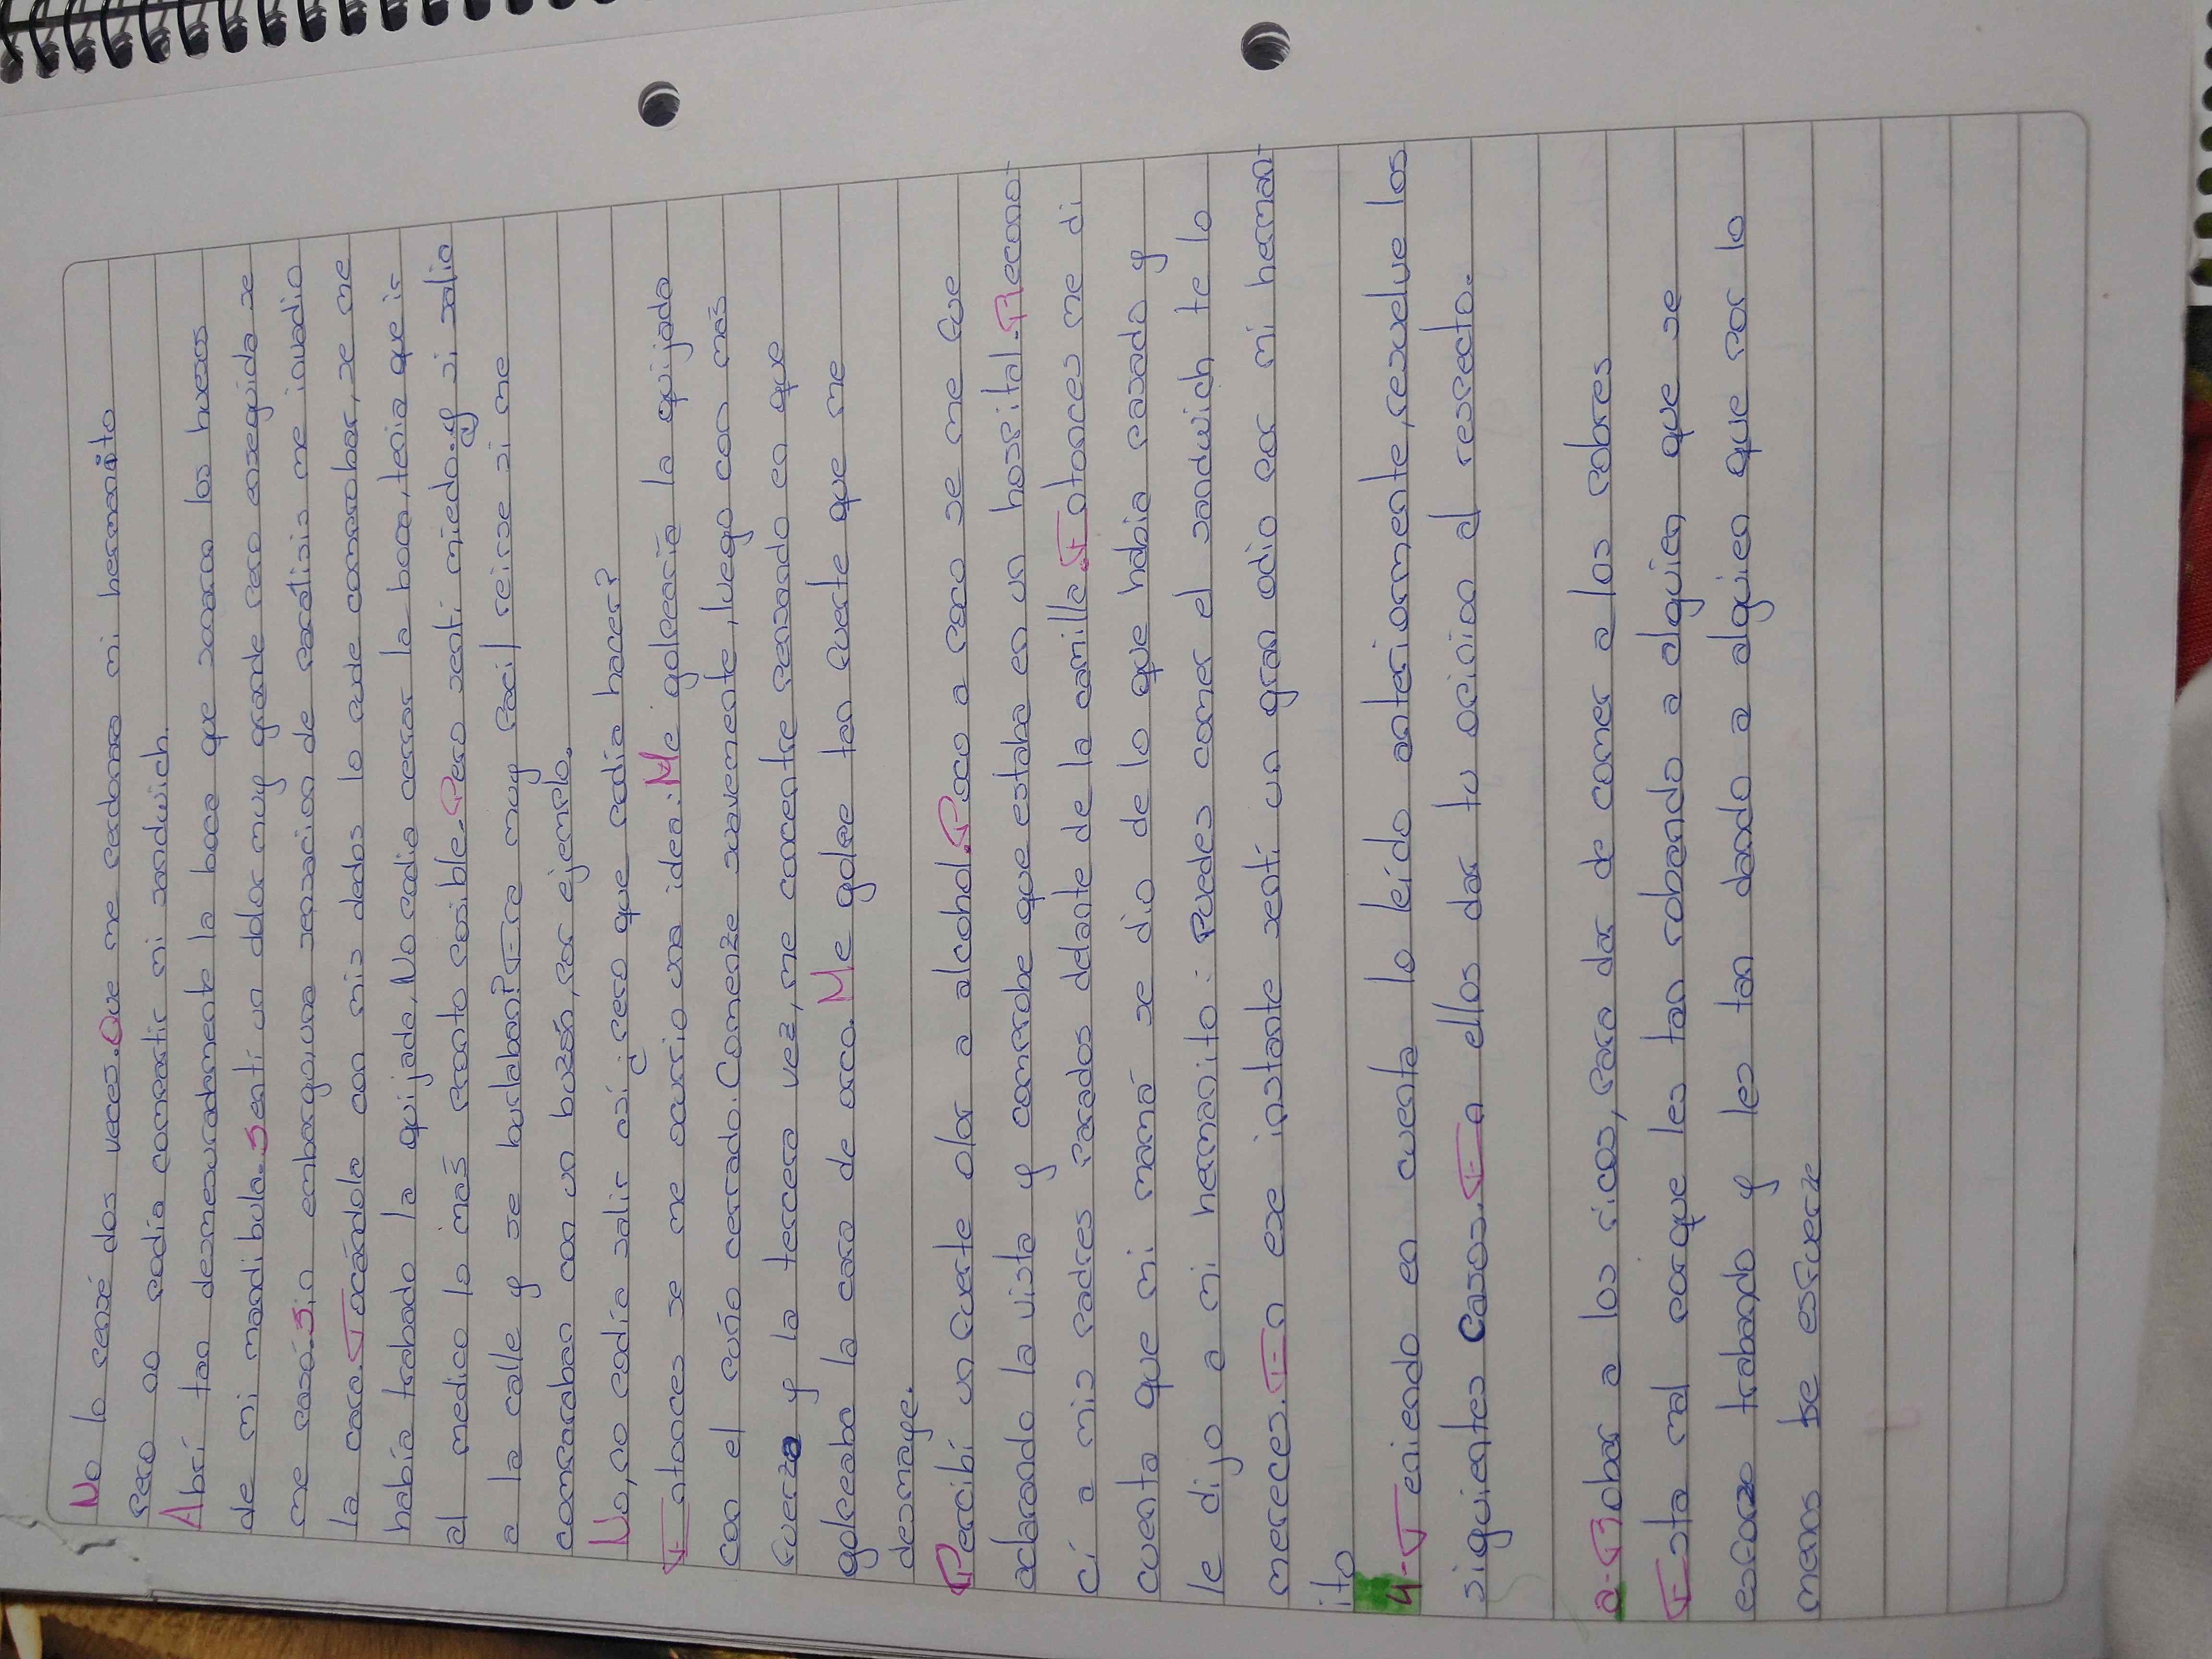 No lo pensé dos veces. Que me perdona mi hermanito
Pero no podía compartir mi sandwich.
Abrí tan desmesuradamente la boca que sonaron los huesos
de mi mandibula. Sentí un dolor muy grande pero enseguida se
me pasó. Sin embargo, una sensacion de parálisis me invadio
la cara. Tocándola con mis dedos lo pude comprobar, se me
había trabado la quijada, No podia cerrar la boca, tenia que ir
al medico lo más pronto posible. Pero senti miedo. ¿y si salio
a la calle y se burlaban? Era muy facil reirse si me
comparaban con un buzón, por ejemplo.
No, no podía salir así ¿pero que podía hacer?
Entonces se me ocurrio una idea: Me golpearía la quijada
con el puño cerrado. Comenze suavemente, luego con más
fuerza y la tercera vez, me concentre pensando en que
golpeaba la cara de orco. Me golpe tan fuerte que me
desmaye.
Percibí un fuerte olor a alcohol. Poco a poco se me fue
aclarando la vista y comprobe que estaba en un hospital. Recono-
cí a mis padres parados delante de la camilla. Entonces me di
cuenta que mi mamá se dio de lo que habia pasado y
le dijo a mi hermanito: Puedes comer el sandwich te lo
mereces. En ese instante sentí un gran odio por mi herman-
ito
4-Teniendo en cuenta lo leído anteriormente, resuelve los
siguientes casos. En ellos dar tu opinion al respecto.
a-Robar a los ricos, Para dar de comer a los pobres
Esta mal porque les tan robando a alguien que se
esforzo trabando y les tan dando a alguien que por lo
menos se esfuerze